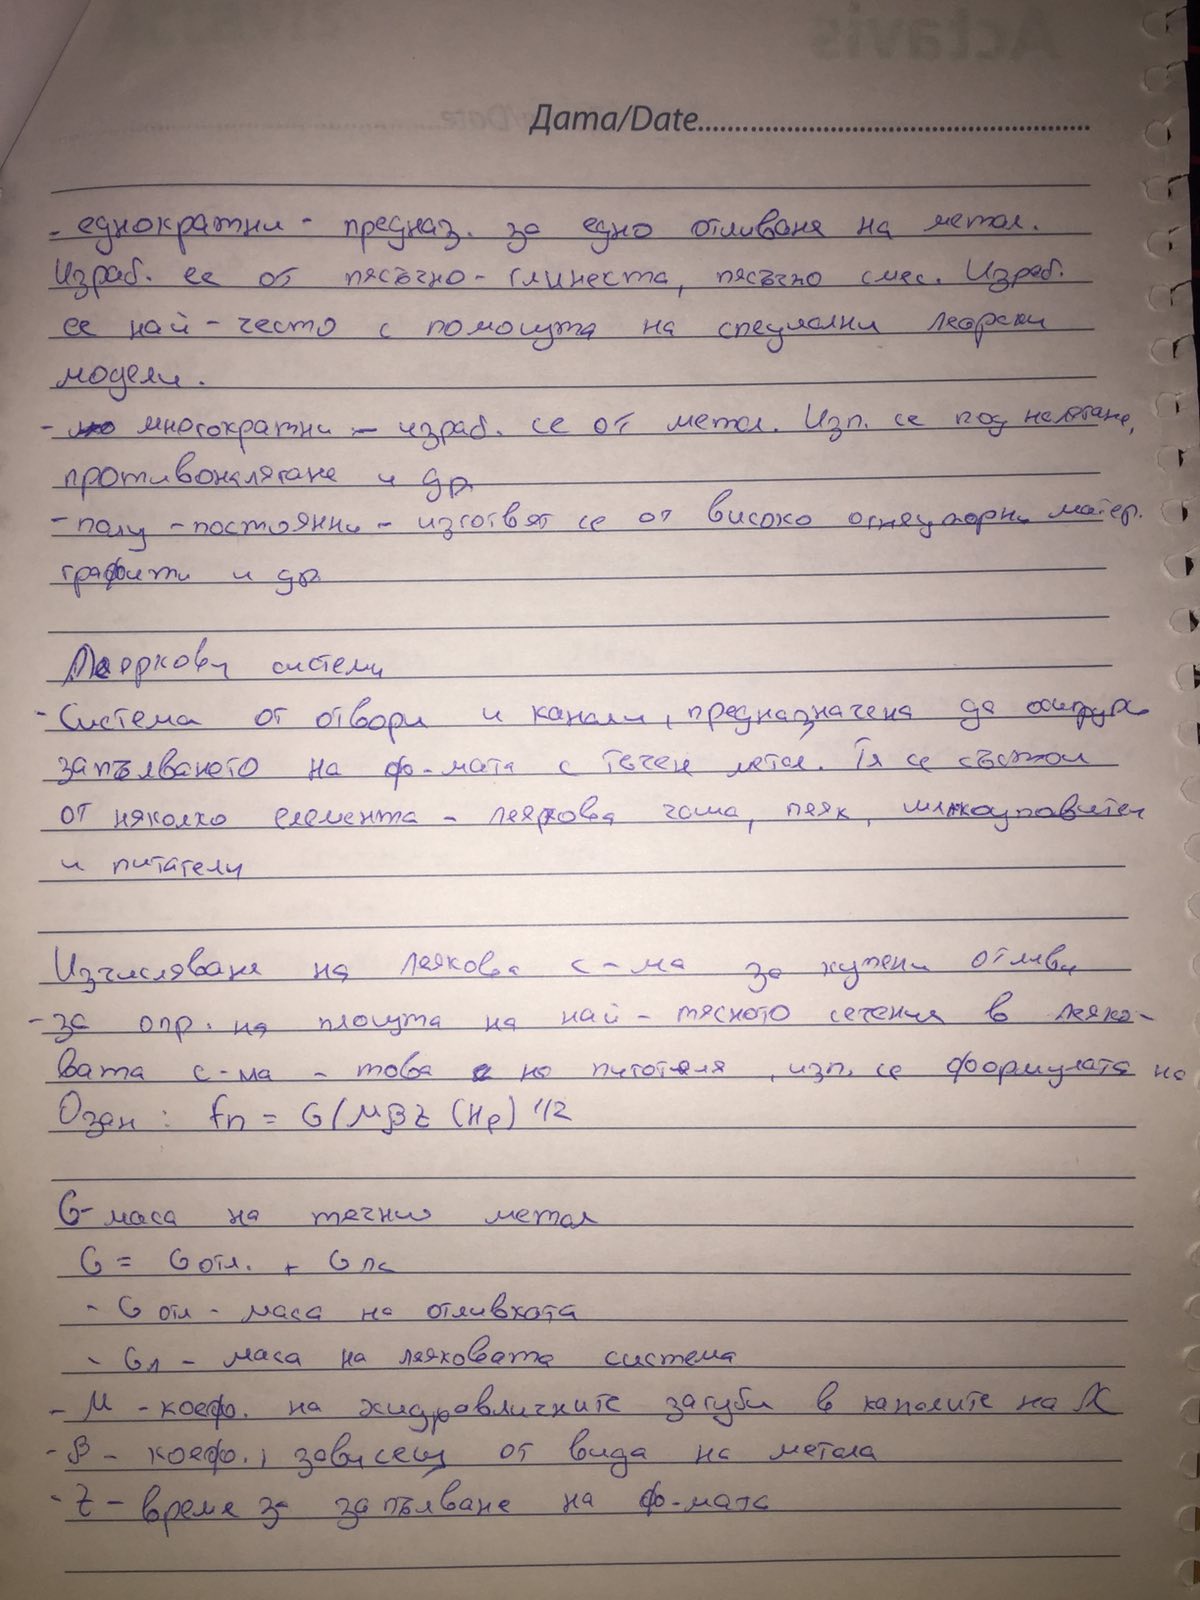 Дата/Date
- еднократни - предназ. за едно отливане на метал.
Израб. се от пясъчно-глинеста, пясъчно смес. Израб.
се най-често с помощта на специални леярски
модели.
- многократни - израб. се от метал. Изп. се под налягане,
противоналягане и др.
- полу-постоянни - изготвят се от високо огнеупорни матер.
графити и др.
Леяркови системи
- Система от отвори и канали, предназначена да осигури
запълването на ф-мата с течен метал. Тя се състои
от няколко елемента - леякова чаша, леяк, шлакоуловител
и питатели
Изчисляване на леякова с-ма за отливки
- за опр. на площта на най-тясното сечение в леяко-
вата с-ма - това е на питателя, изп. се формулата на
Озан: fп = G/μβτ (Hp) 1/2
G - маса на течния метал
G = Gотл. + Gлс
- Gотл - маса на отливката
- Gл - маса на леяковата система
- μ - коеф. на хидравличните загуби в каналите на ЛС
- β - коеф., зависещ от вида на метала
- τ - време за запълване на ф-мата